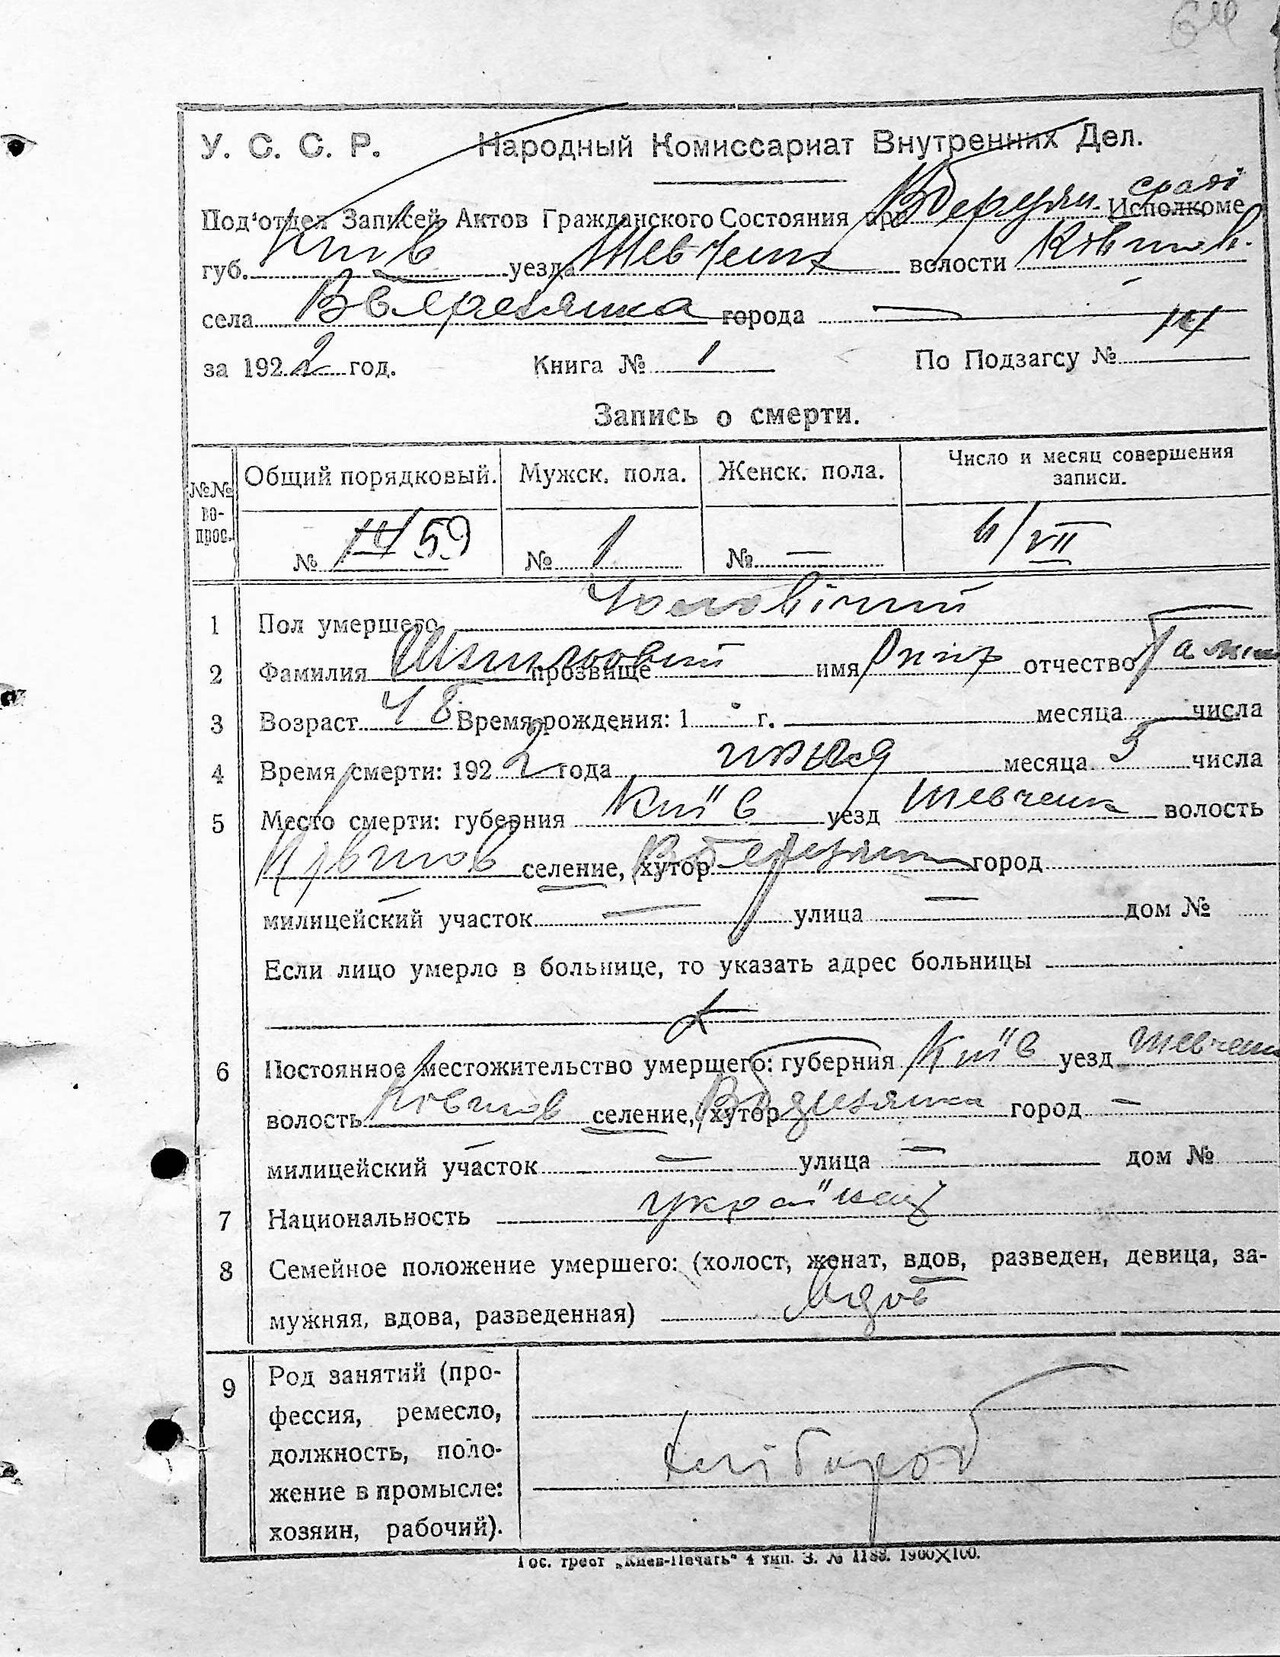 64
У. С. С. Р. Народный Комиссариат Внутренних Дел.
Под'отдел Записей Актов Гражданского Состояния при Исполкоме
губ. Київ уезда Шевченк волости
села города —
за 1922 год. Книга № 1 По Подзагсу № 14
Запись о смерти.
№№ вопрос. Общий порядковый. Мужск. пола. Женск. пола. Число и месяц совершения записи.
№ 14/59 № 1 № — /VII
1 Пол умершего Чоловічий
2 Фамилия прозвище имя отчество
3 Возраст 48 Время рождения: 1 г. месяца числа
4 Время смерти: 1922 года месяца 5 числа
5 Место смерти: губерния Київ уезд Шевченк волость
селение, хутор город
милицейский участок — улица — дом №
Если лицо умерло в больнице, то указать адрес больницы
6 Постоянное местожительство умершего: губерния Київ уезд Шевченк
волость селение, хутор город —
милицейский участок — улица — дом №
7 Национальность українец
8 Семейное положение умершего: (холост, женат, вдов, разведен, девица, за-
мужняя, вдова, разведенная) Вдов
9 Род занятий (про-
фессия, ремесло,
должность, поло-
жение в промысле:
хозяин, рабочий).
хлібороб
Гос. трест „Киев-Печать" 4 тип. З. № 1188. 1900×100.